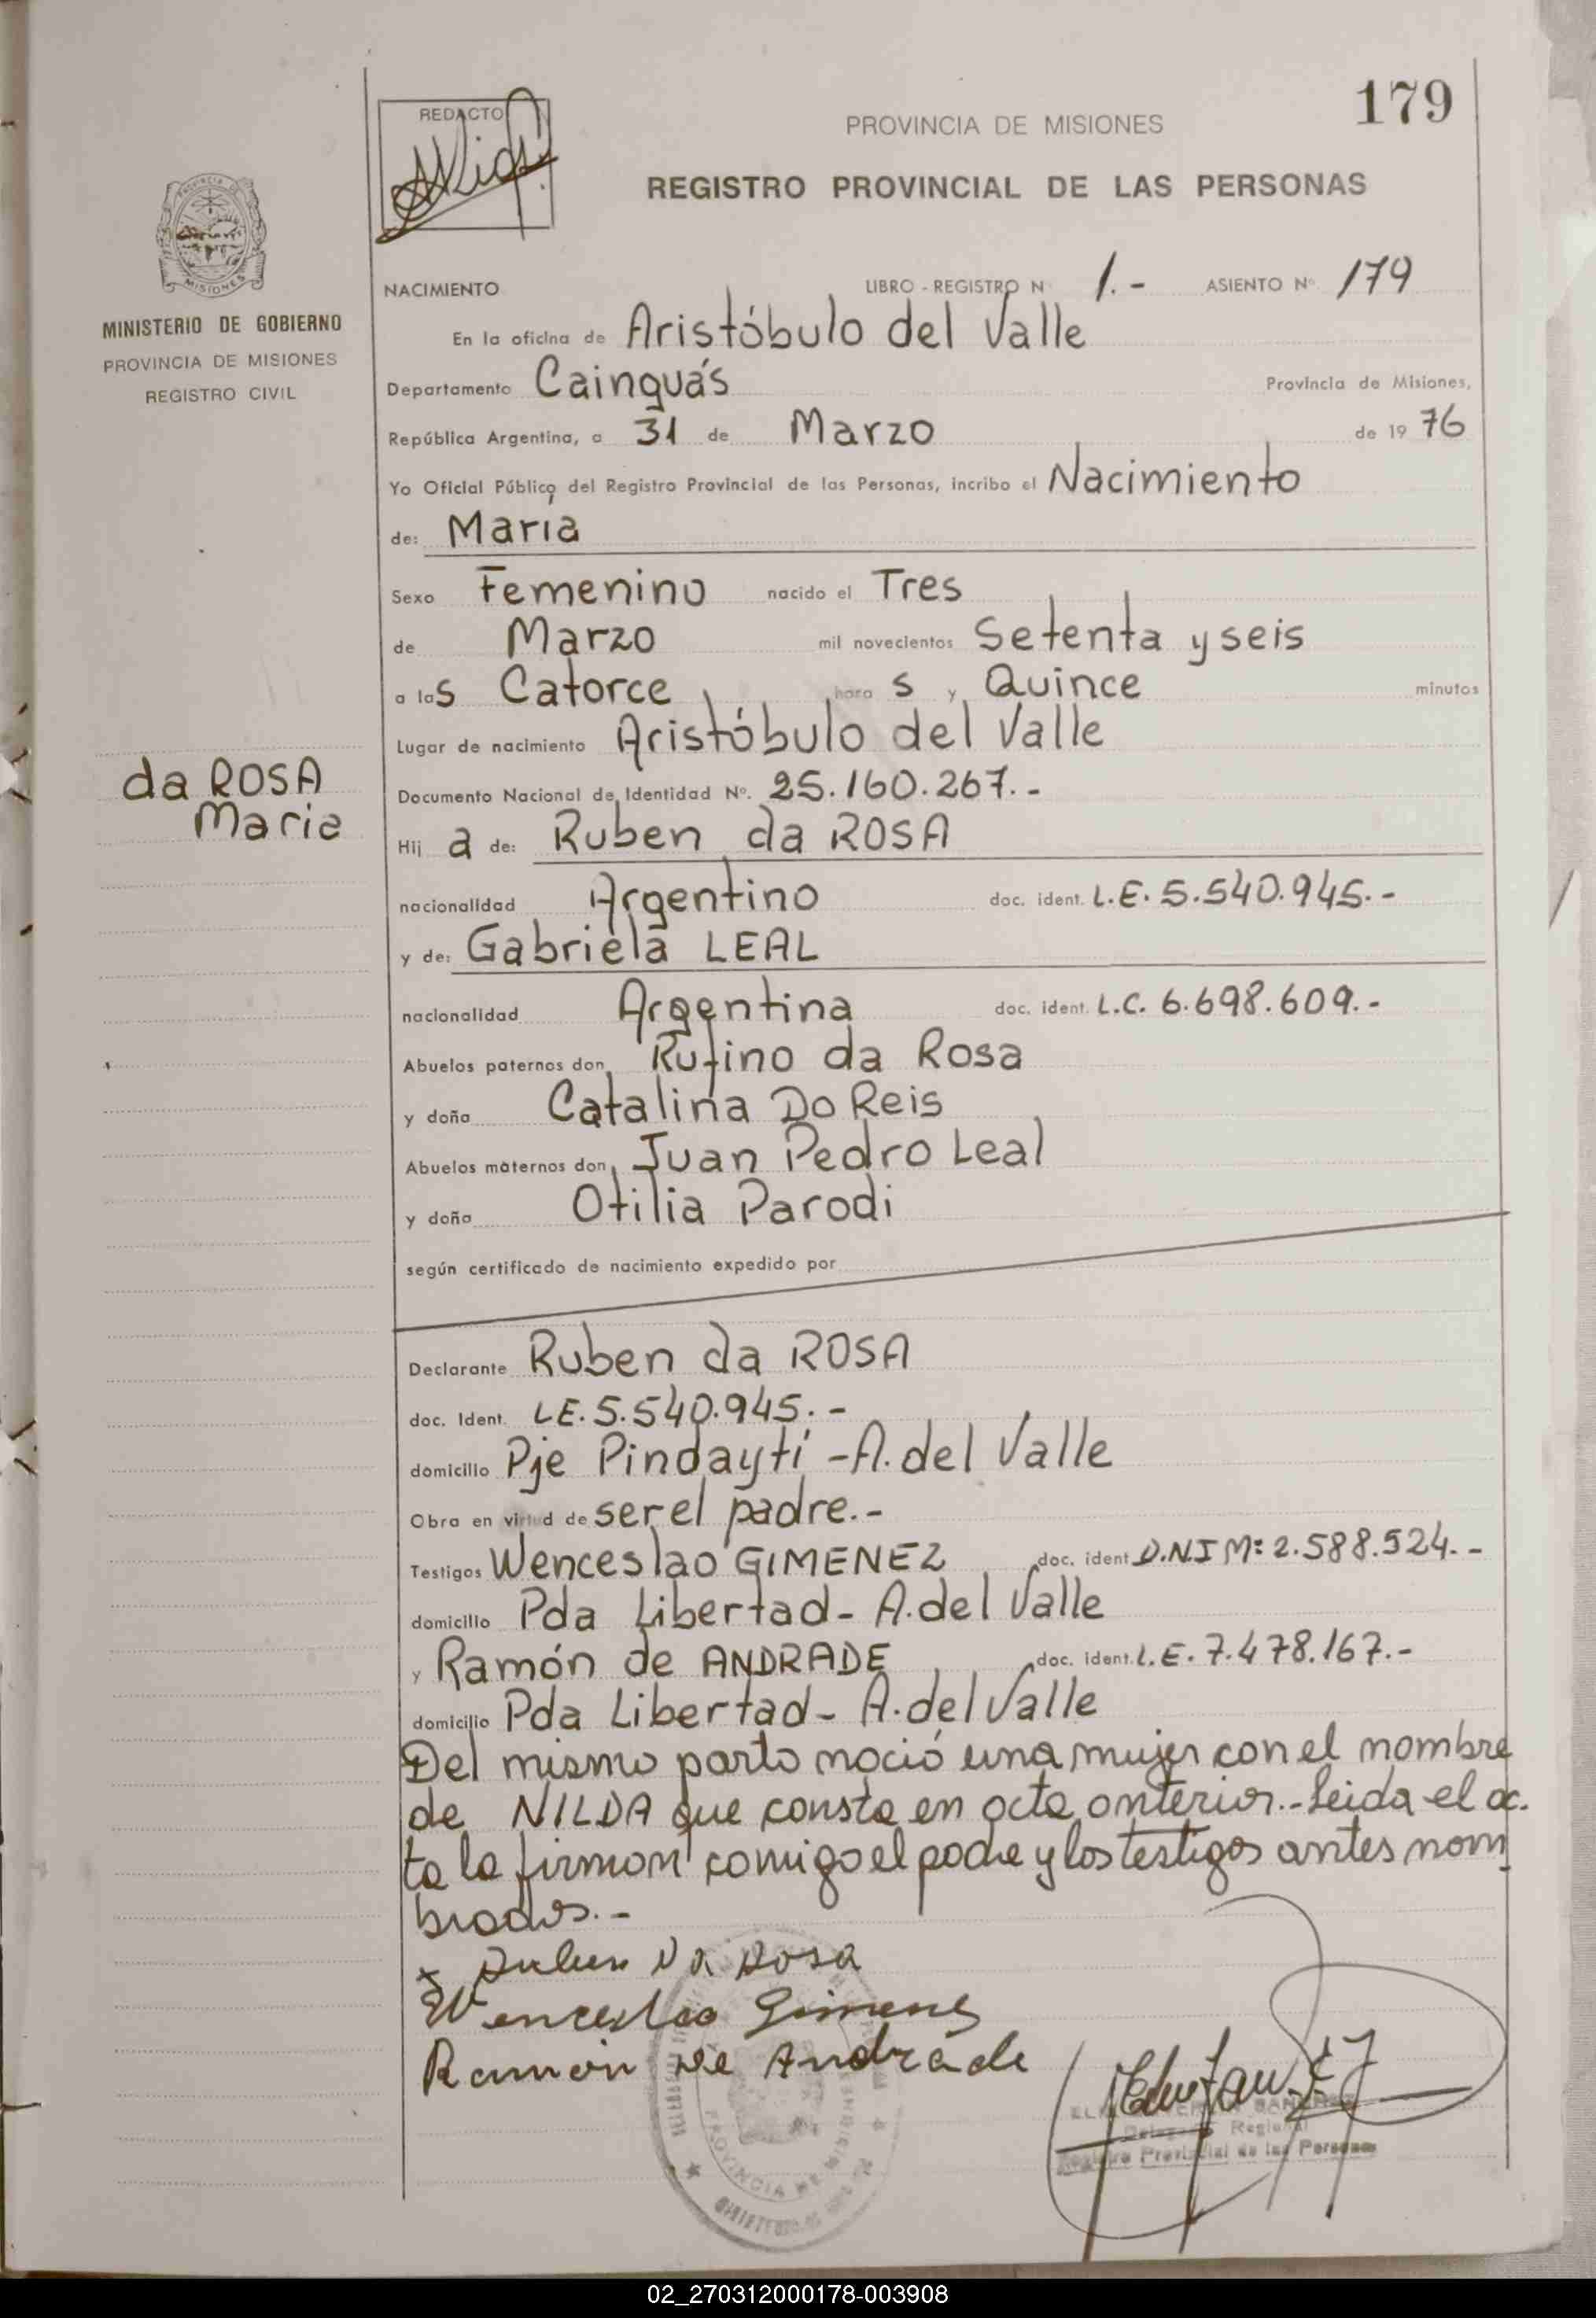 179
REDACTO
PROVINCIA DE MISIONES
REGISTRO PROVINCIAL DE LAS PERSONAS
MISIONES
MINISTERIO DE GOBIERNO
PROVINCIA DE MISIONES
REGISTRO CIVIL
NACIMIENTO LIBRO - REGISTRO N 1.- ASIENTO Nº 179
En la oficina de Aristóbulo del Valle
Departamento Cainguás Provincia de Misiones,
República Argentina, a 31 de Marzo de 19 76
Yo Oficial Público del Registro Provincial de las Personas, incribo el Nacimiento
de: María
Sexo Femenino nacido el Tres
de Marzo mil novecientos Setenta y seis
a las Catorce hora s y Quince minutos
Lugar de nacimiento Aristóbulo del Valle
da ROSA
Maria
Documento Nacional de Identidad Nº. 25.160.267.-
Hij a de: Ruben da ROSA
nacionalidad Argentino doc. ident. L.E. 5.540.945.-
y de: Gabriela LEAL
nacionalidad Argentina doc. ident. L.C. 6.698.609.-
Abuelos paternos don Rufino da Rosa
y doña Catalina Do Reis
Abuelos maternos don Juan Pedro Leal
y doña Otilia Parodi
según certificado de nacimiento expedido por
Declarante Ruben da ROSA
doc. Ident. LE. 5.540.945.-
domicilio Pje Pindaytí - A. del Valle
Obra en virtud de ser el padre.-
Testigos Wenceslao GIMENEZ doc. ident D.N.I M: 2.588.524.-
domicilio Pda Libertad - A. del Valle
y Ramón de ANDRADE doc. ident. L.E. 7.478.167.-
domicilio Pda Libertad - A. del Valle
Del mismo parto nació una mujer con el nombre
de NILDA que consta en acta anterior.- Leida el ac-
ta la firman comigo el padre y los testigos antes nom
brados.-
x Ruben Da Rosa
Wenceslao Gimenez
Ramón De Andrade
PROVINCIA DE MISIONES
Regional
Registro Provincial de las Personas
02_270312000178-003908